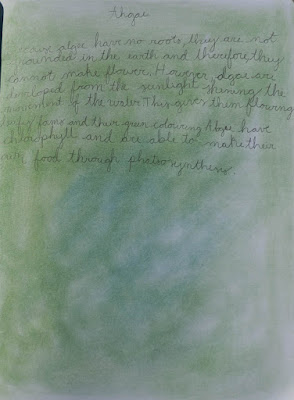 Ahgae
Because algae have no roots, they are not
grounded in the earth and therefore, they
cannot make flowers. However, algae are
developed from the sunlight shining the
movement of the water. This gives them flowing
leafy forms and their green colouring. Algae have
chlorophyll and are able to make their
own food through photosynthesis.